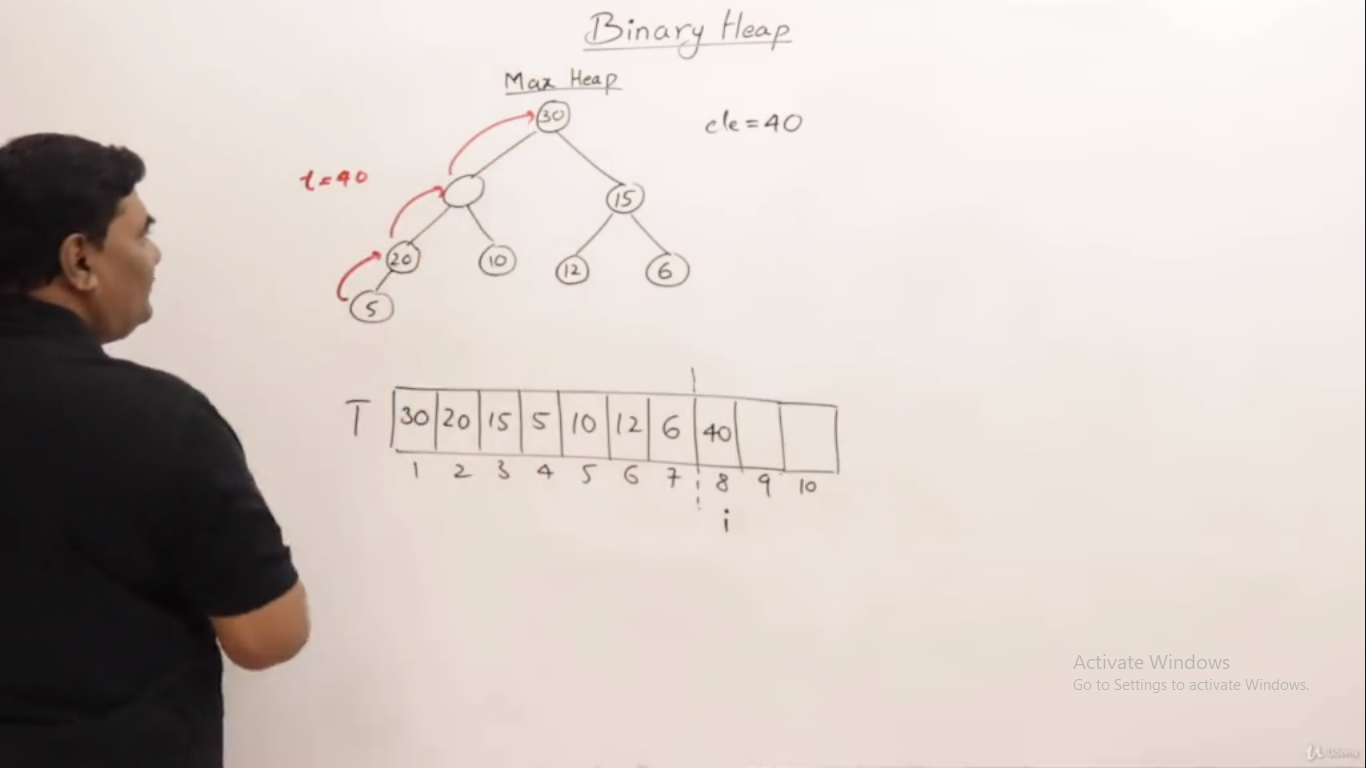 Binary Heap
Max Heap
30
ele = 40
t = 40
15
20
10
12
6
5
T
30 20 15 5 10 12 6 40
1 2 3 4 5 6 7 8 9 10
i
Activate Windows
Go to Settings to activate Windows.
Udemy